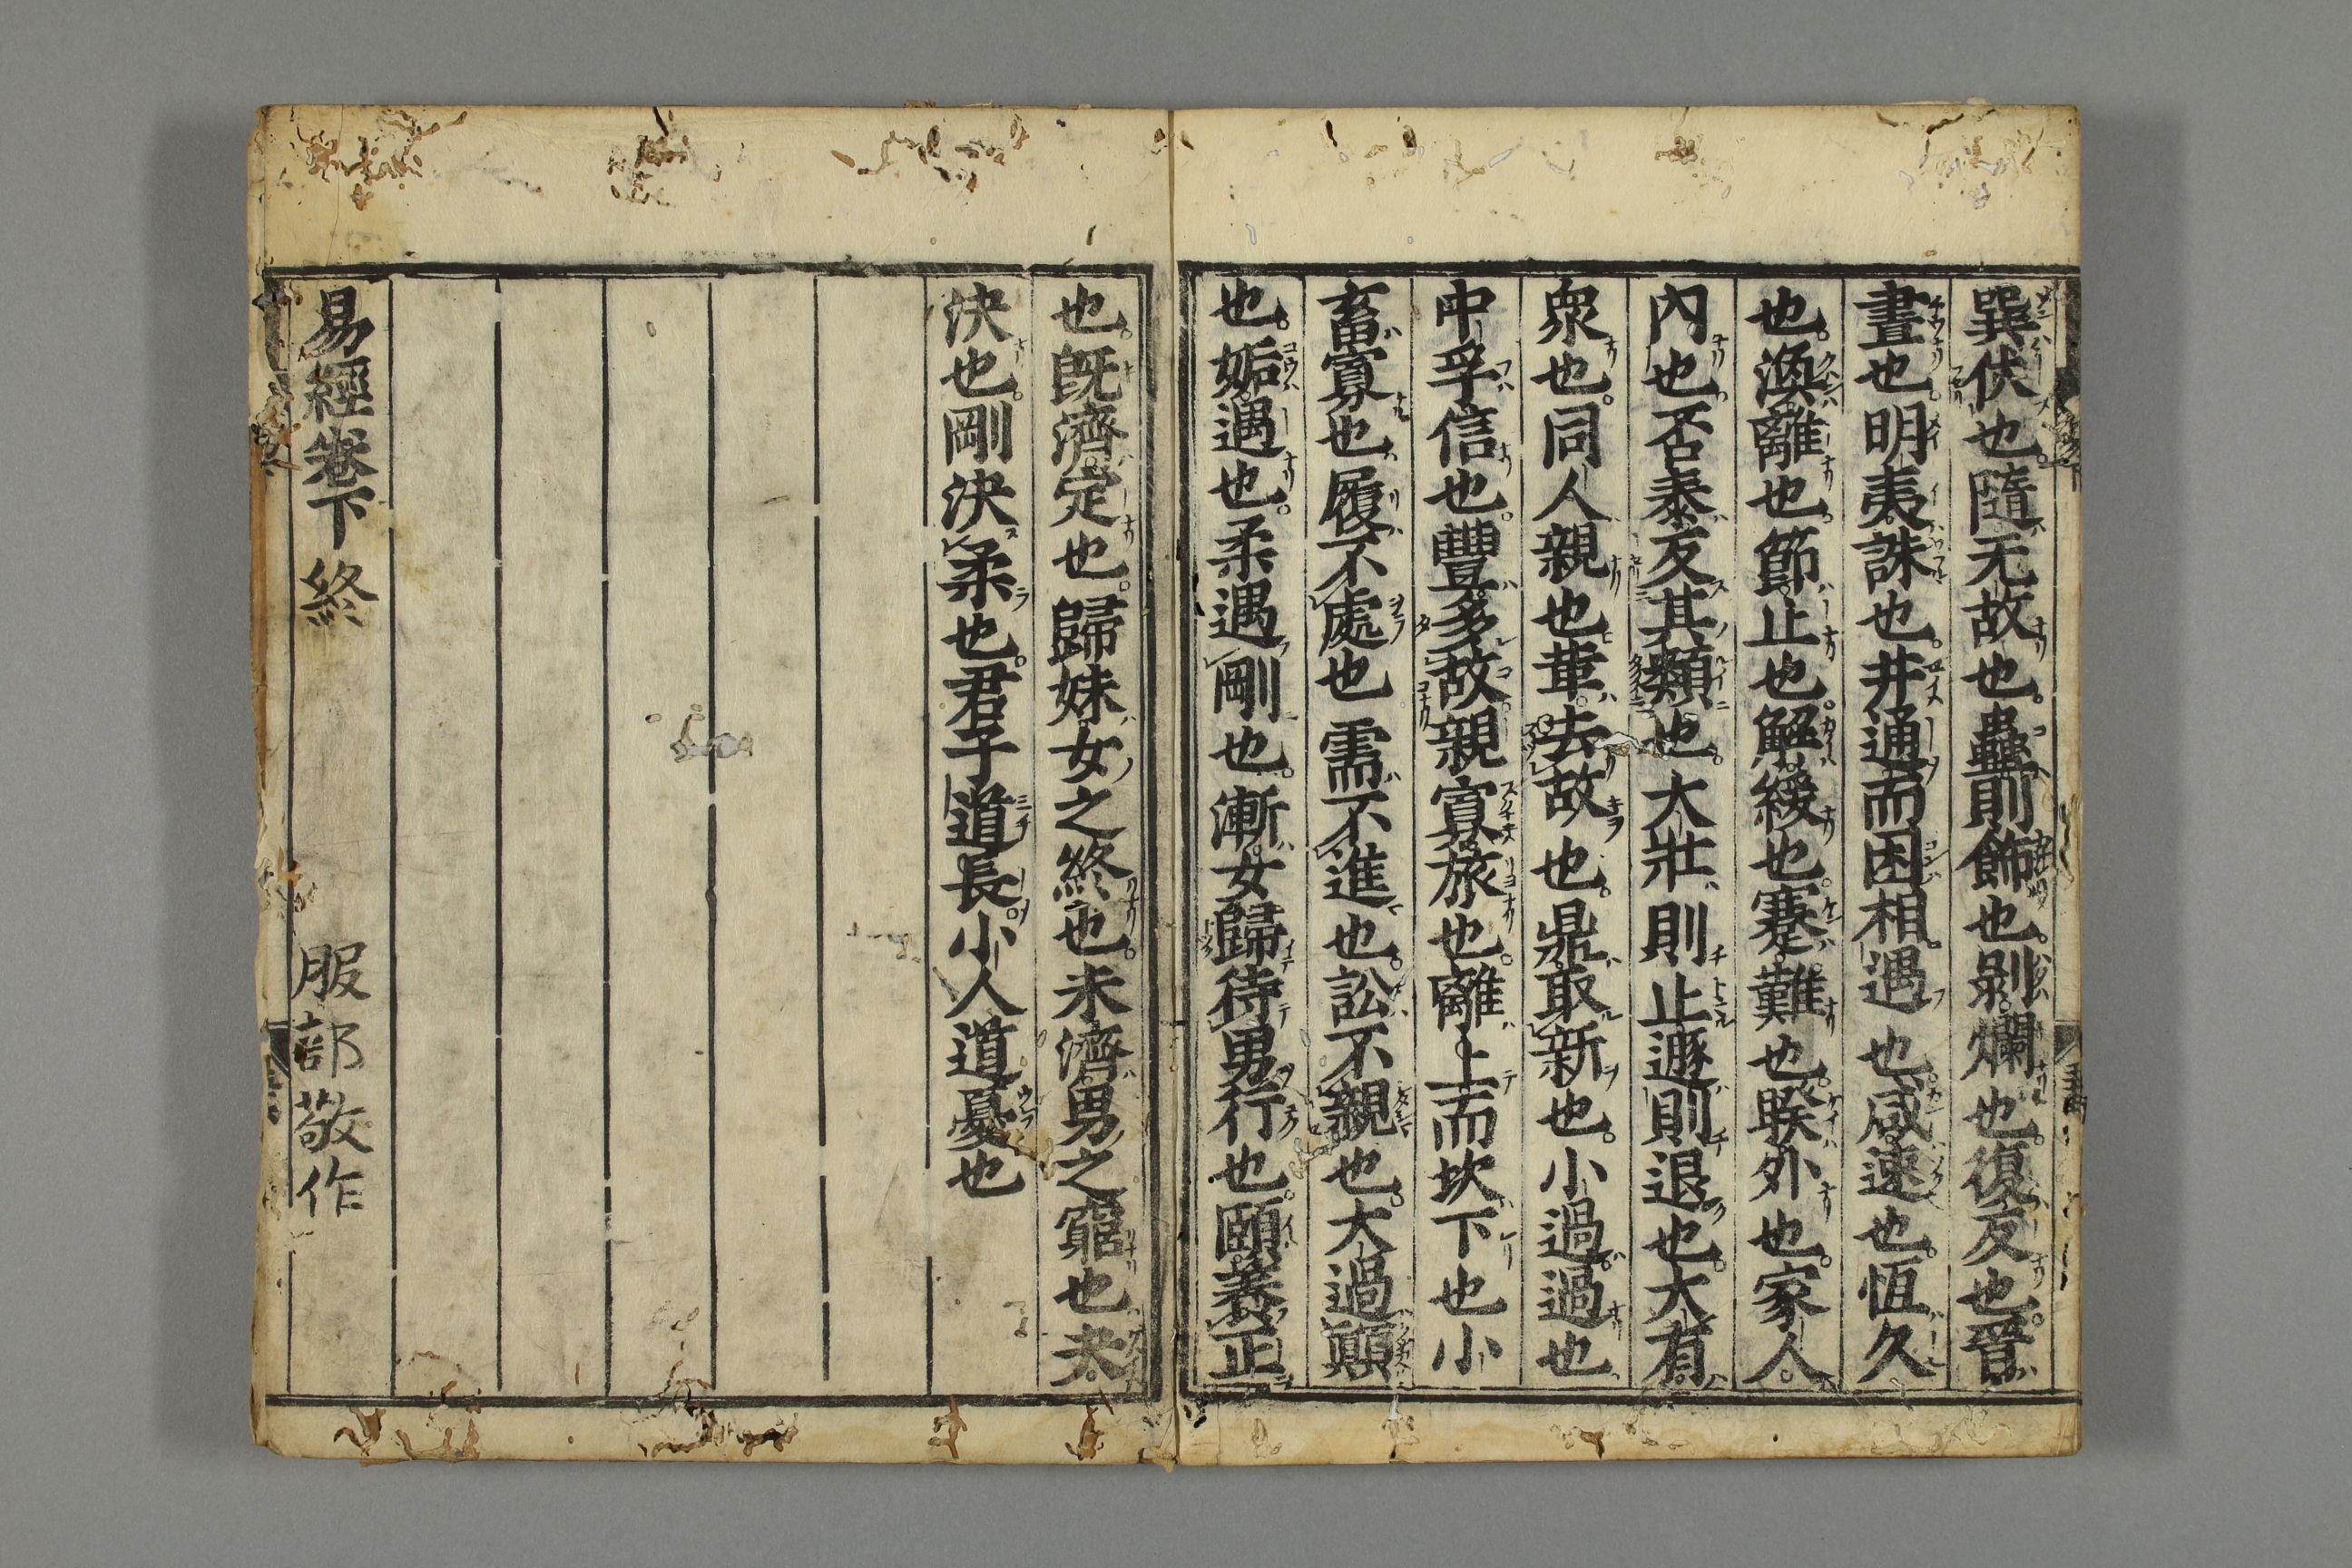 巽伏也。隨无故也。蠱則飾也。剝爛也。復反也。晉
晝也。明夷誅也。井通而困相遇也。咸速也。恆久
也。渙離也。節止也。解緩也。蹇難也。睽外也。家人
內也。否泰反其類也。大壯則止遯則退也。大有
衆也。同人親也。革去故也。鼎取新也。小過過也
中孚信也。豐多故。親寡旅也。離上而坎下也小
畜寡也。履不處也需不進也。訟不親也。大過顚
也。姤遇也。柔遇剛也。漸女歸待男行也。頤養正
也。旣濟定也。歸妹女之終也。未濟男之窮也夬
決也。剛決柔也。君子道長。小人道憂也
易經卷下 終 服部敬作